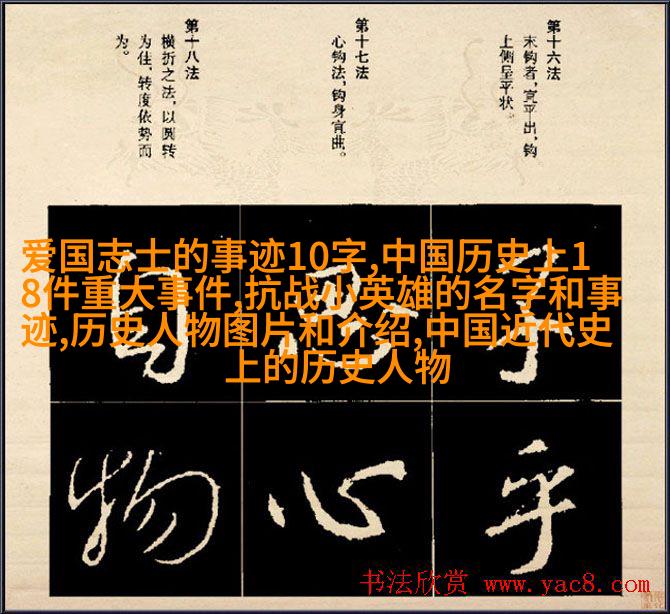 第十六法
末钩者,宜平出,钩
上侧呈平状
第十七法
心钩法,钩身宜曲。
第十八法
横折之法,以圆转
为佳,转度依势而
为。
爱国志士的事迹10字,中国历史上1
8件重大事件,抗战小英雄的名字和事
迹,历史人物图片和介绍,中国近代史
上的历史人物
自
乎
心
物
书法欣赏 www.yac8.com